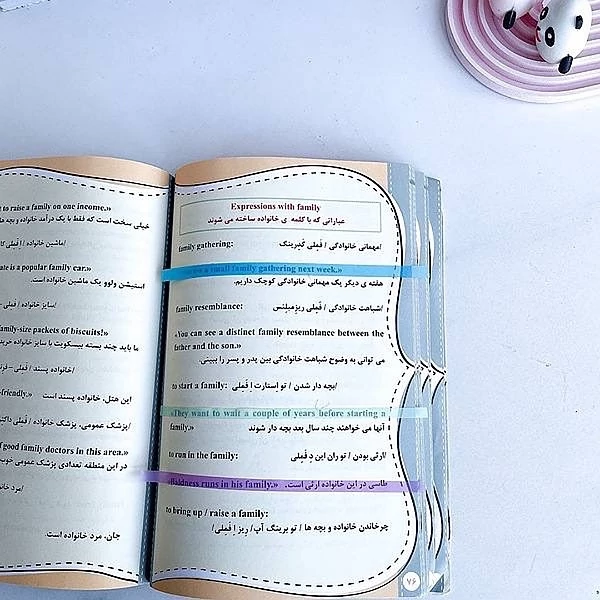 to raise a family on one income.»
خیلی سخت است که فقط با یک درآمد خانواده و بچه ها
/ماشین خانواده / فَمِلی
is a popular family car.»
استیشن ولوو یک ماشین خانواده است.
/سایز خانواده / فَمِلی
family-size packets of biscuits!»
ما باید چند بسته بیسکویت با سایز خانواده
/خانواده پسند / فَمِلی
friendly.» این هتل، خانواده پسند است
/پزشک عمومی، پزشک خانواده / فَمِلی
good family doctors in this area.»
در این منطقه تعدادی پزشک عمومی خوب
جان، مرد خانواده است.
Expressions with family
عباراتی که با کلمه ی خانواده ساخته می شوند
family gathering: /مهمانی خانوادگی / فَمِلی گَدِرینگ
a small family gathering next week.»
هفته ی دیگر یک مهمانی خانوادگی کوچک داریم.
family resemblance: /شباهت خانوادگی / فَمِلی ریزِمبِلِنس
«You can see a distinct family resemblance between the
father and the son.»
می توانی به وضوح شباهت خانوادگی بین پدر و پسر را ببینی.
to start a family: /بچه دار شدن / تو اِستارت اِ فَمِلی
«They want to wait a couple of years before starting a
family.» آنها می خواهند چند سال بعد بچه دار شوند
to run in the family: /ارثی بودن / تو ران این دِ فَمِلی
«Baldness runs in his family.» طاسی در این خانواده ارثی است.
to bring up / raise a family:
چرخاندن خانواده و بچه ها / تو برینگ آپ/ رِیز اِ فَمِلی/
۷۶